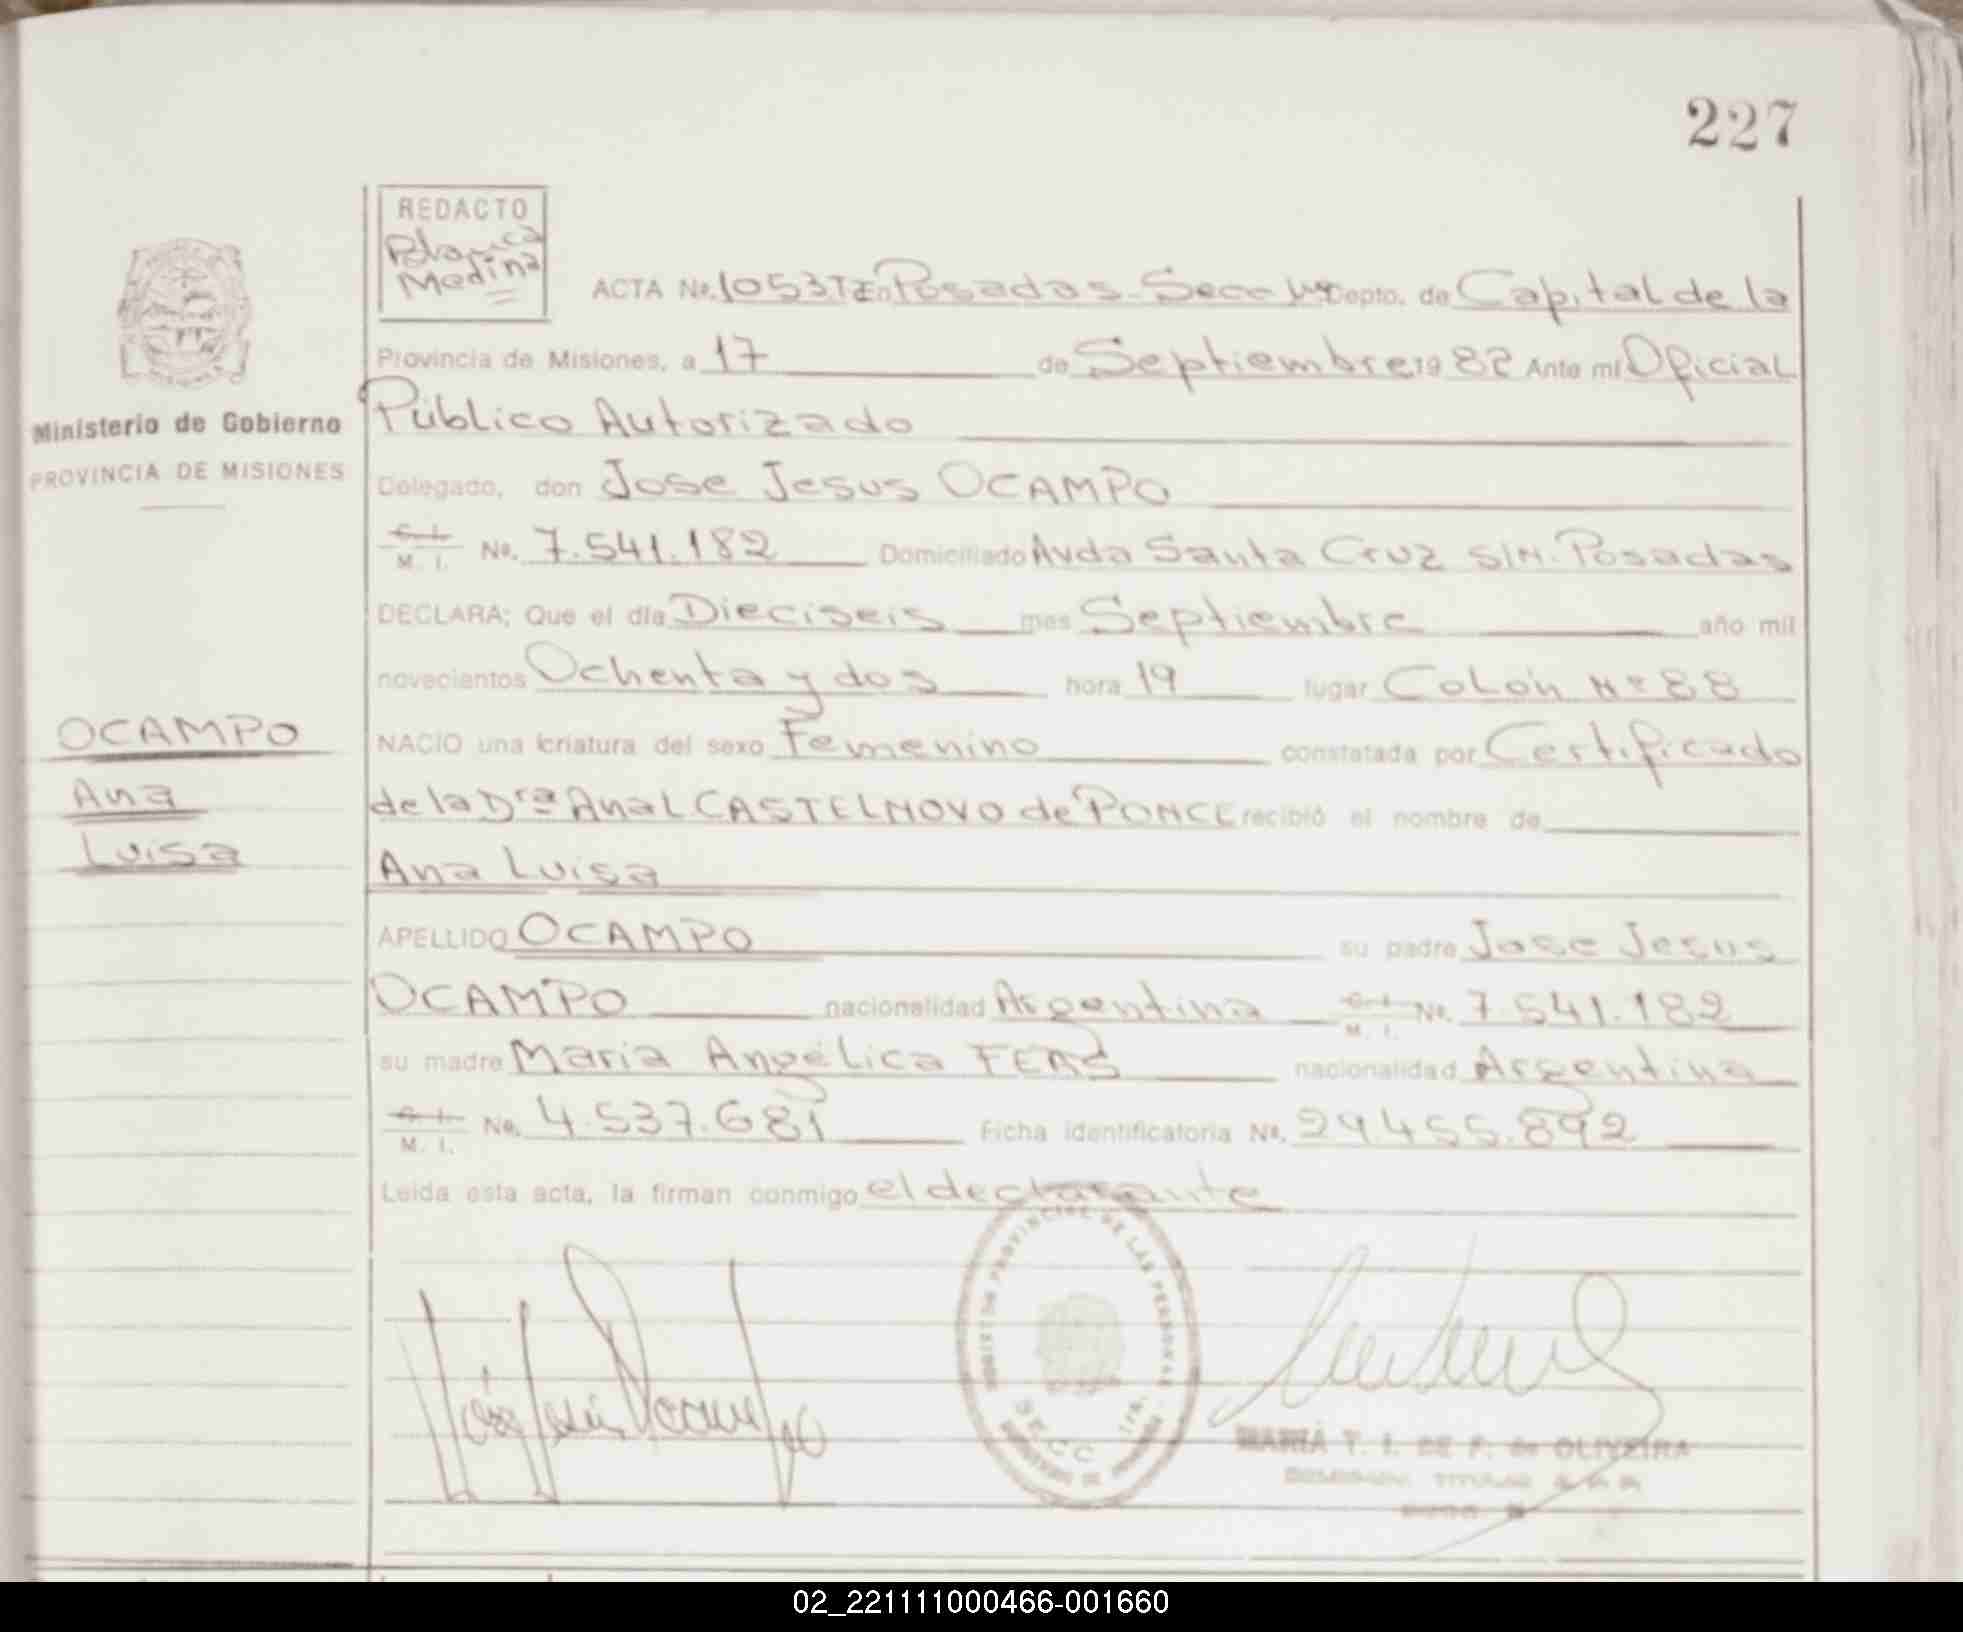 227
REDACTO
Blanca
Medina
ACTA No. 1053 TZ En Posadas - Secc Depto. de Capital de la
Provincia de Misiones, a 17 de Septiembre 19 82 Ante mi Oficial
Público Autorizado
Ministerio de Gobierno
PROVINCIA DE MISIONES
Delegado, don Jose Jesus OCAMPO
C. I. M. I. No. 7.541.182 Domiciliado Avda Santa Cruz S/N. Posadas
DECLARA; Que el día Dieciseis mes Septiembre año mil
novecientos Ochenta y dos hora 19 lugar Colón Nº 88
OCAMPO
Ana
Luisa
NACIO una criatura del sexo Femenino constatada por Certificado
de la Drª Ana L CASTELNOVO de PONCE recibió el nombre de
Ana Luisa
APELLIDO OCAMPO su padre Jose Jesus
OCAMPO nacionalidad Argentina C. I. M. I. No. 7.541.182
su madre Maria Angélica FERS nacionalidad Argentina
C. I. M. I. No. 4.537.681 Ficha identificatoria No. 29.455.892
Leida esta acta, la firman conmigo el declarante
PROVINCIAL DE LAS PERSONAS
MARIA T. I. DE F. de OLIVEIRA
02_221111000466-001660